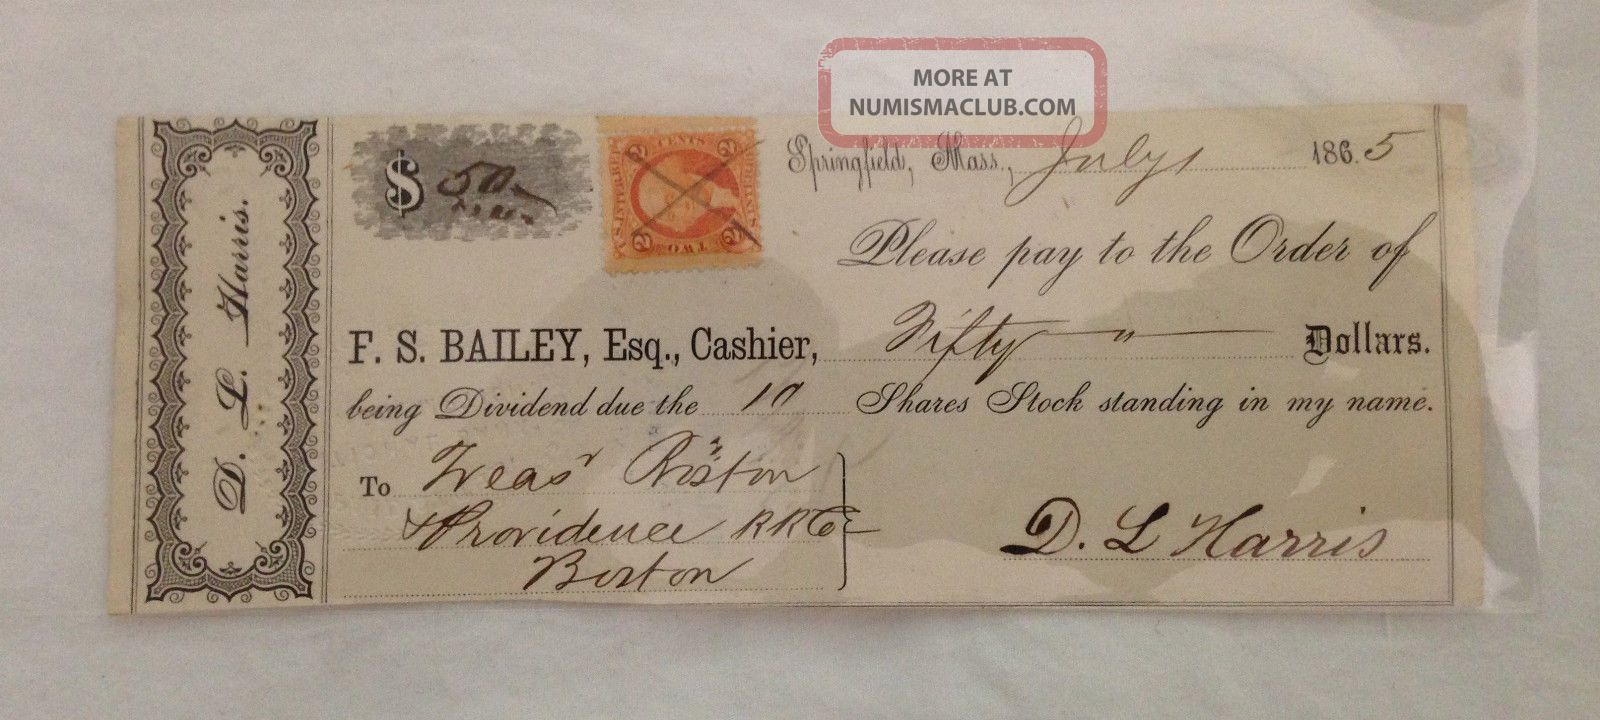 MORE AT
NUMISMACLUB.COM
D. L. Harris.
$ 50
2 CENTS 2
U.S. INTER. REV.
TWO
Springfield, Mass., July 1 1865
Please pay to the Order of
F. S. BAILEY, Esq., Cashier, Fifty " Dollars.
being Dividend due the 10 Shares Stock standing in my name.
To Treasr Boston
& Providence RR Co
Boston
D. L Harris